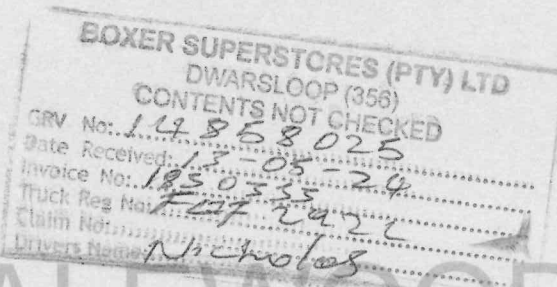 BOXER SUPERSTORES (PTY) LTD
DWARSLOOP (356)
CONTENTS NOT CHECKED
GRV No: 14858025
Date Received: 13-05-24
Invoice No:
Truck Reg No:
Claim No:
Drivers Name: Nicholas